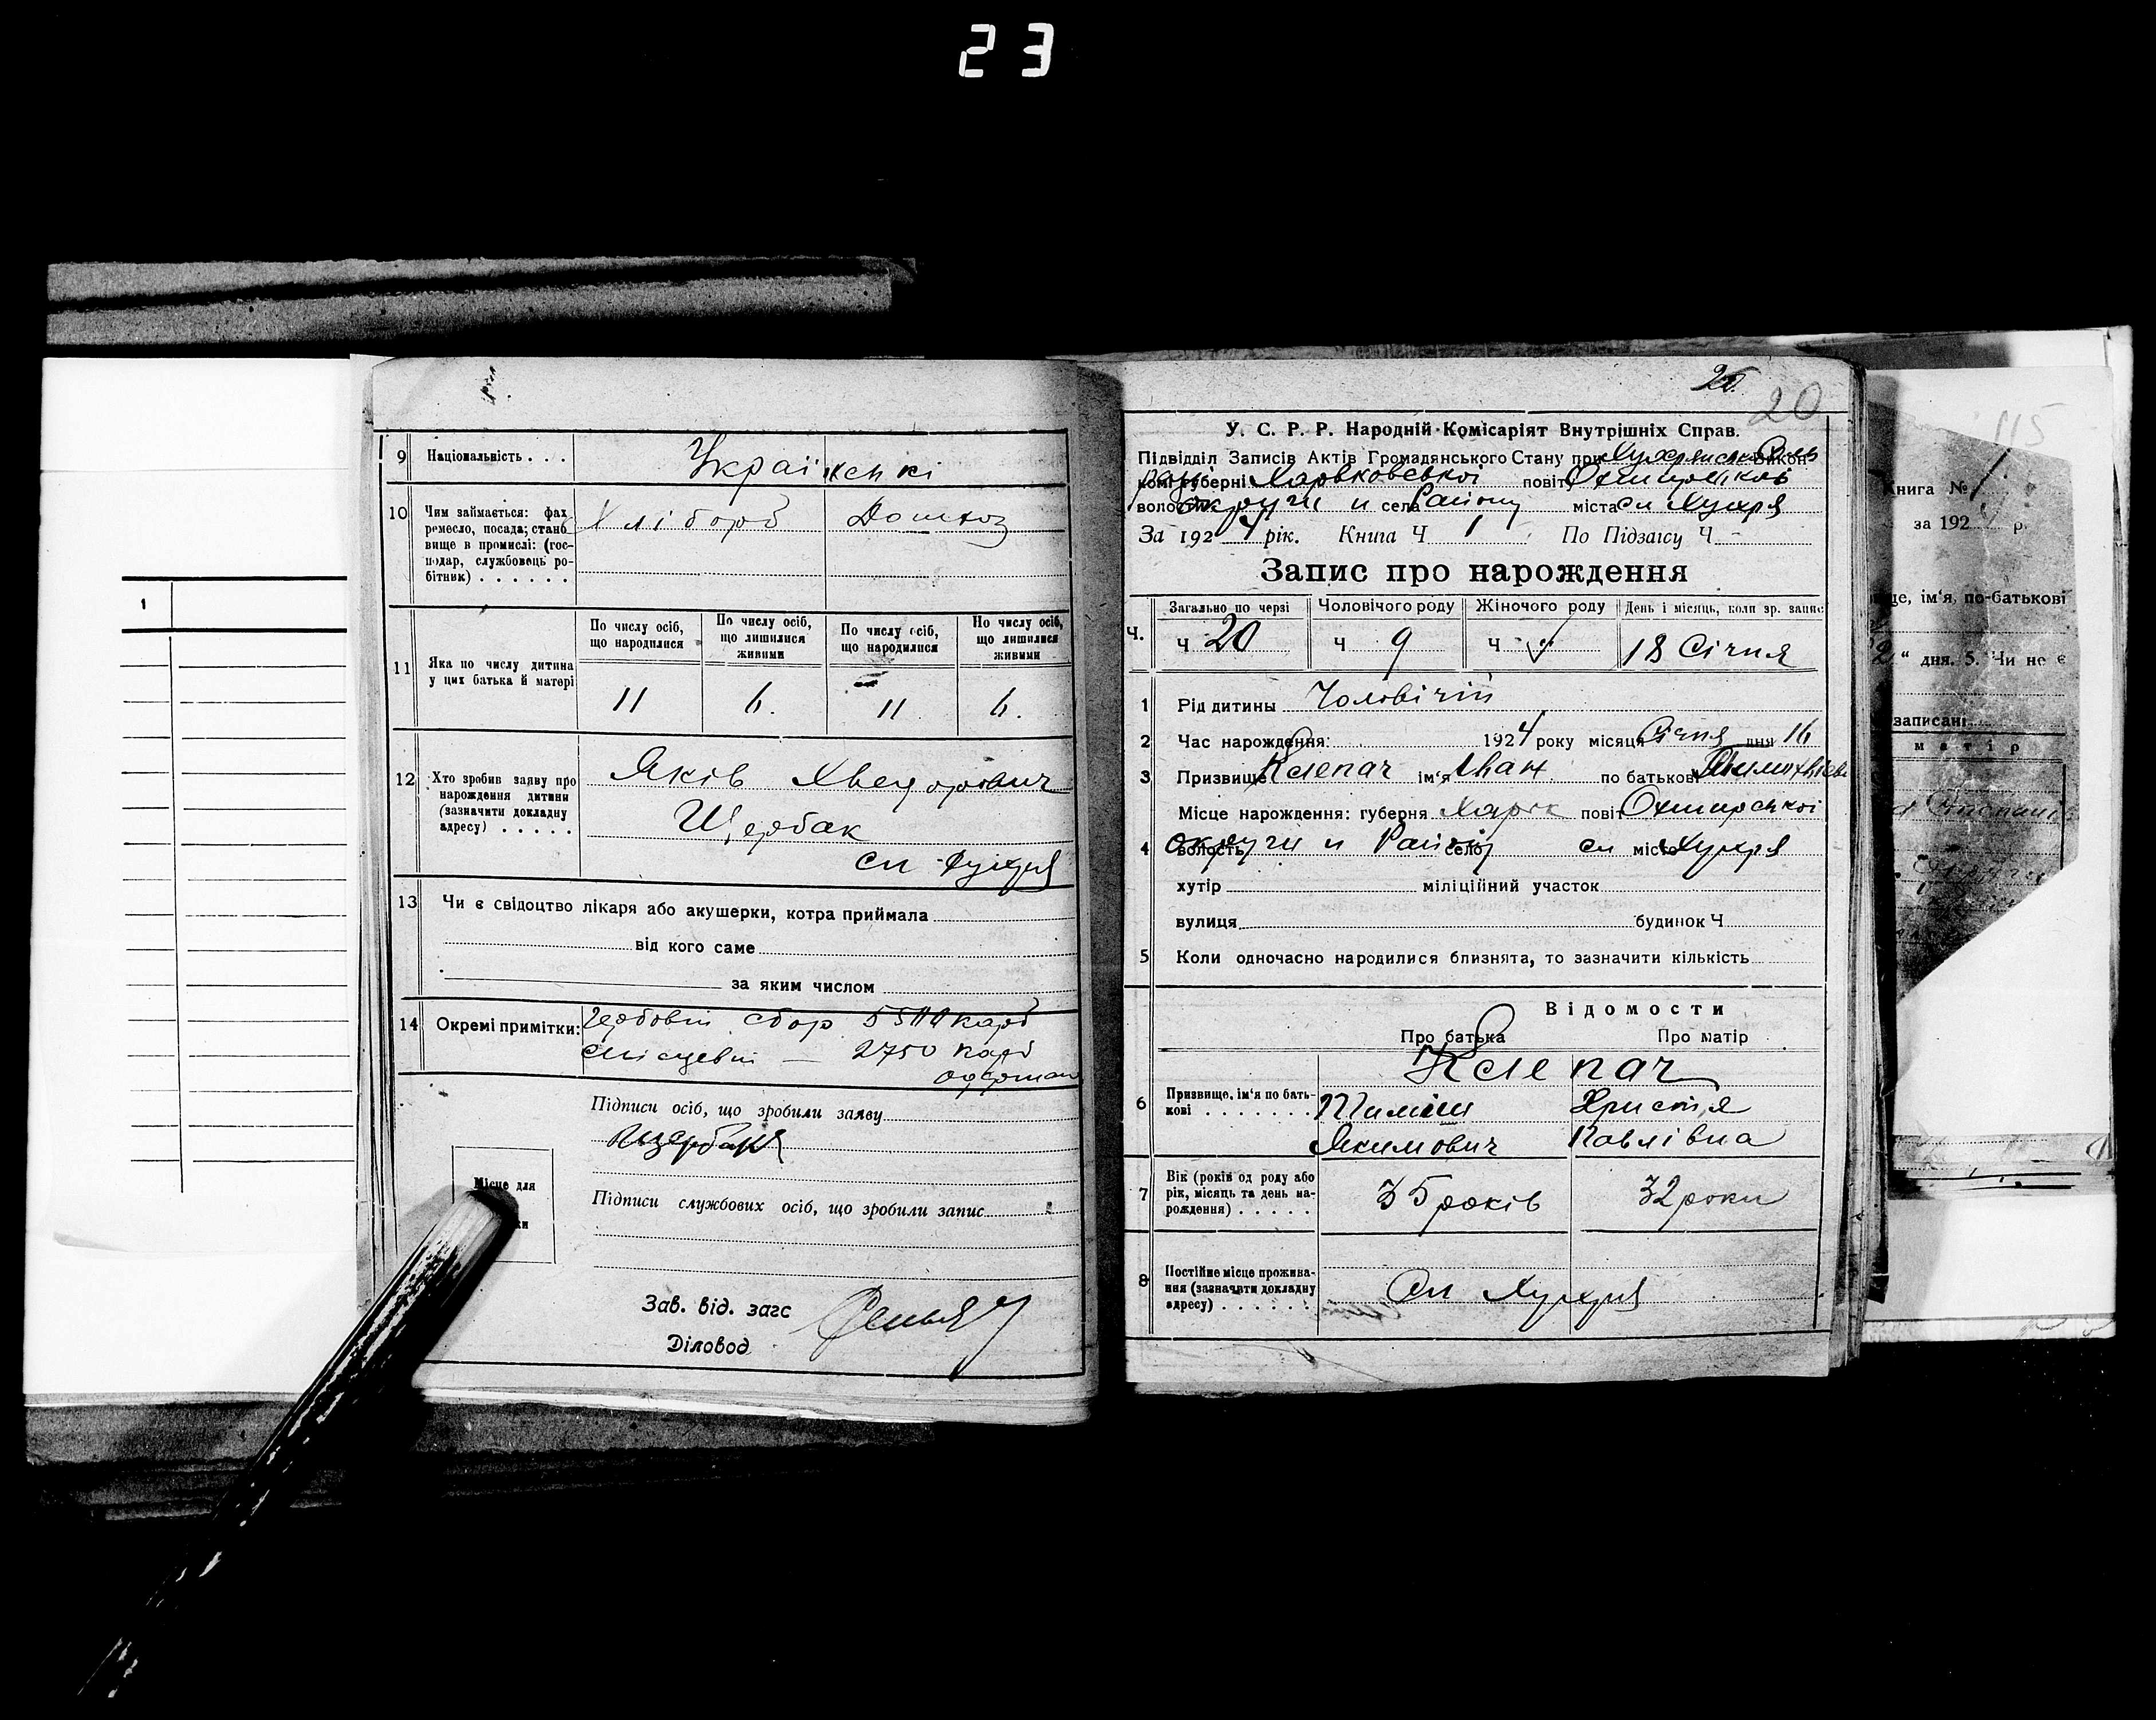 23
9 Національність . . .
Українські
10 Чим займається: фах,
ремесло, посада; стано-
вище в промислі: (гос-
подар, службовець ро-
бітник) . . . . . .
Хлібороб
Домхоз
11 Яка по числу дитина
у цих батька й матері
По числу осіб,
що народилися
По числу осіб,
що лишилися
живими
По числу осіб,
що народилися
По числу осіб,
що лишилися
живими
11 6. 11. 6.
12 Хто зробив заяву про
нарождення дитини
(зазначити докладну
адресу) . . . . .
Яків Хведорович
Щербак
сл Хухря
13 Чи є свідоцтво лікаря або акушерки, котра приймала
від кого саме
за яким числом
14 Окремі примітки:
Гербовий сбор 5500 карб
Місцевий — 2750 карб
одержан
Підписи осіб, що зробили заяву
Щербак
Місце для
ки
Підписи службових осіб, що зробили запис
Зав. від. загс
Діловод
20
У. С. Р. Р. Народній Комісаріят Внутрішніх Справ.
Підвідділ Записів Актів Громадянського Стану при Хухрянськ Викон-
комі губерні Харьковської повіт Охтирської
волость округи и села Району міста сл Хухря
За 1924 рік. Книга Ч 1 По Підзагсу Ч -
Запис про нарождення
Ч.
Загально по черзі
Ч 20
Чоловічого роду
Ч 9
Жіночого роду
Ч
День і місяць, коли зр. запис
18 Січня
1 Рід дитини Чоловічій
2 Час нарождення: 1924 року місяця Січня дня 16
3 Призвище Клепач ім'я Іван по батькові
4 Місце нарождення: губерня Харьк повіт Охтирської
волость округи и Району село сл місто Хухря
хутір міліційний участок
вулиця будинок Ч
5 Коли одночасно народилися близнята, то зазначити кількість
Відомости
Про батька Про матір
6 Призвище, ім'я по бать-
кові . . . . . . .
Клепач
Тиміш Христя
Якимович Павлівна
7 Вік (років од роду або
рік, місяць та день на-
рождення) . . . . .
35 років 32 роки
8 Постійне місце прожива-
ння (зазначити докладну
адресу) . . . . . .
Сл Хухря
1
115
Книга № 1
за 192 р.
ім'я, по-батькові
2 " дня. 5. Чи не є
записані
матір